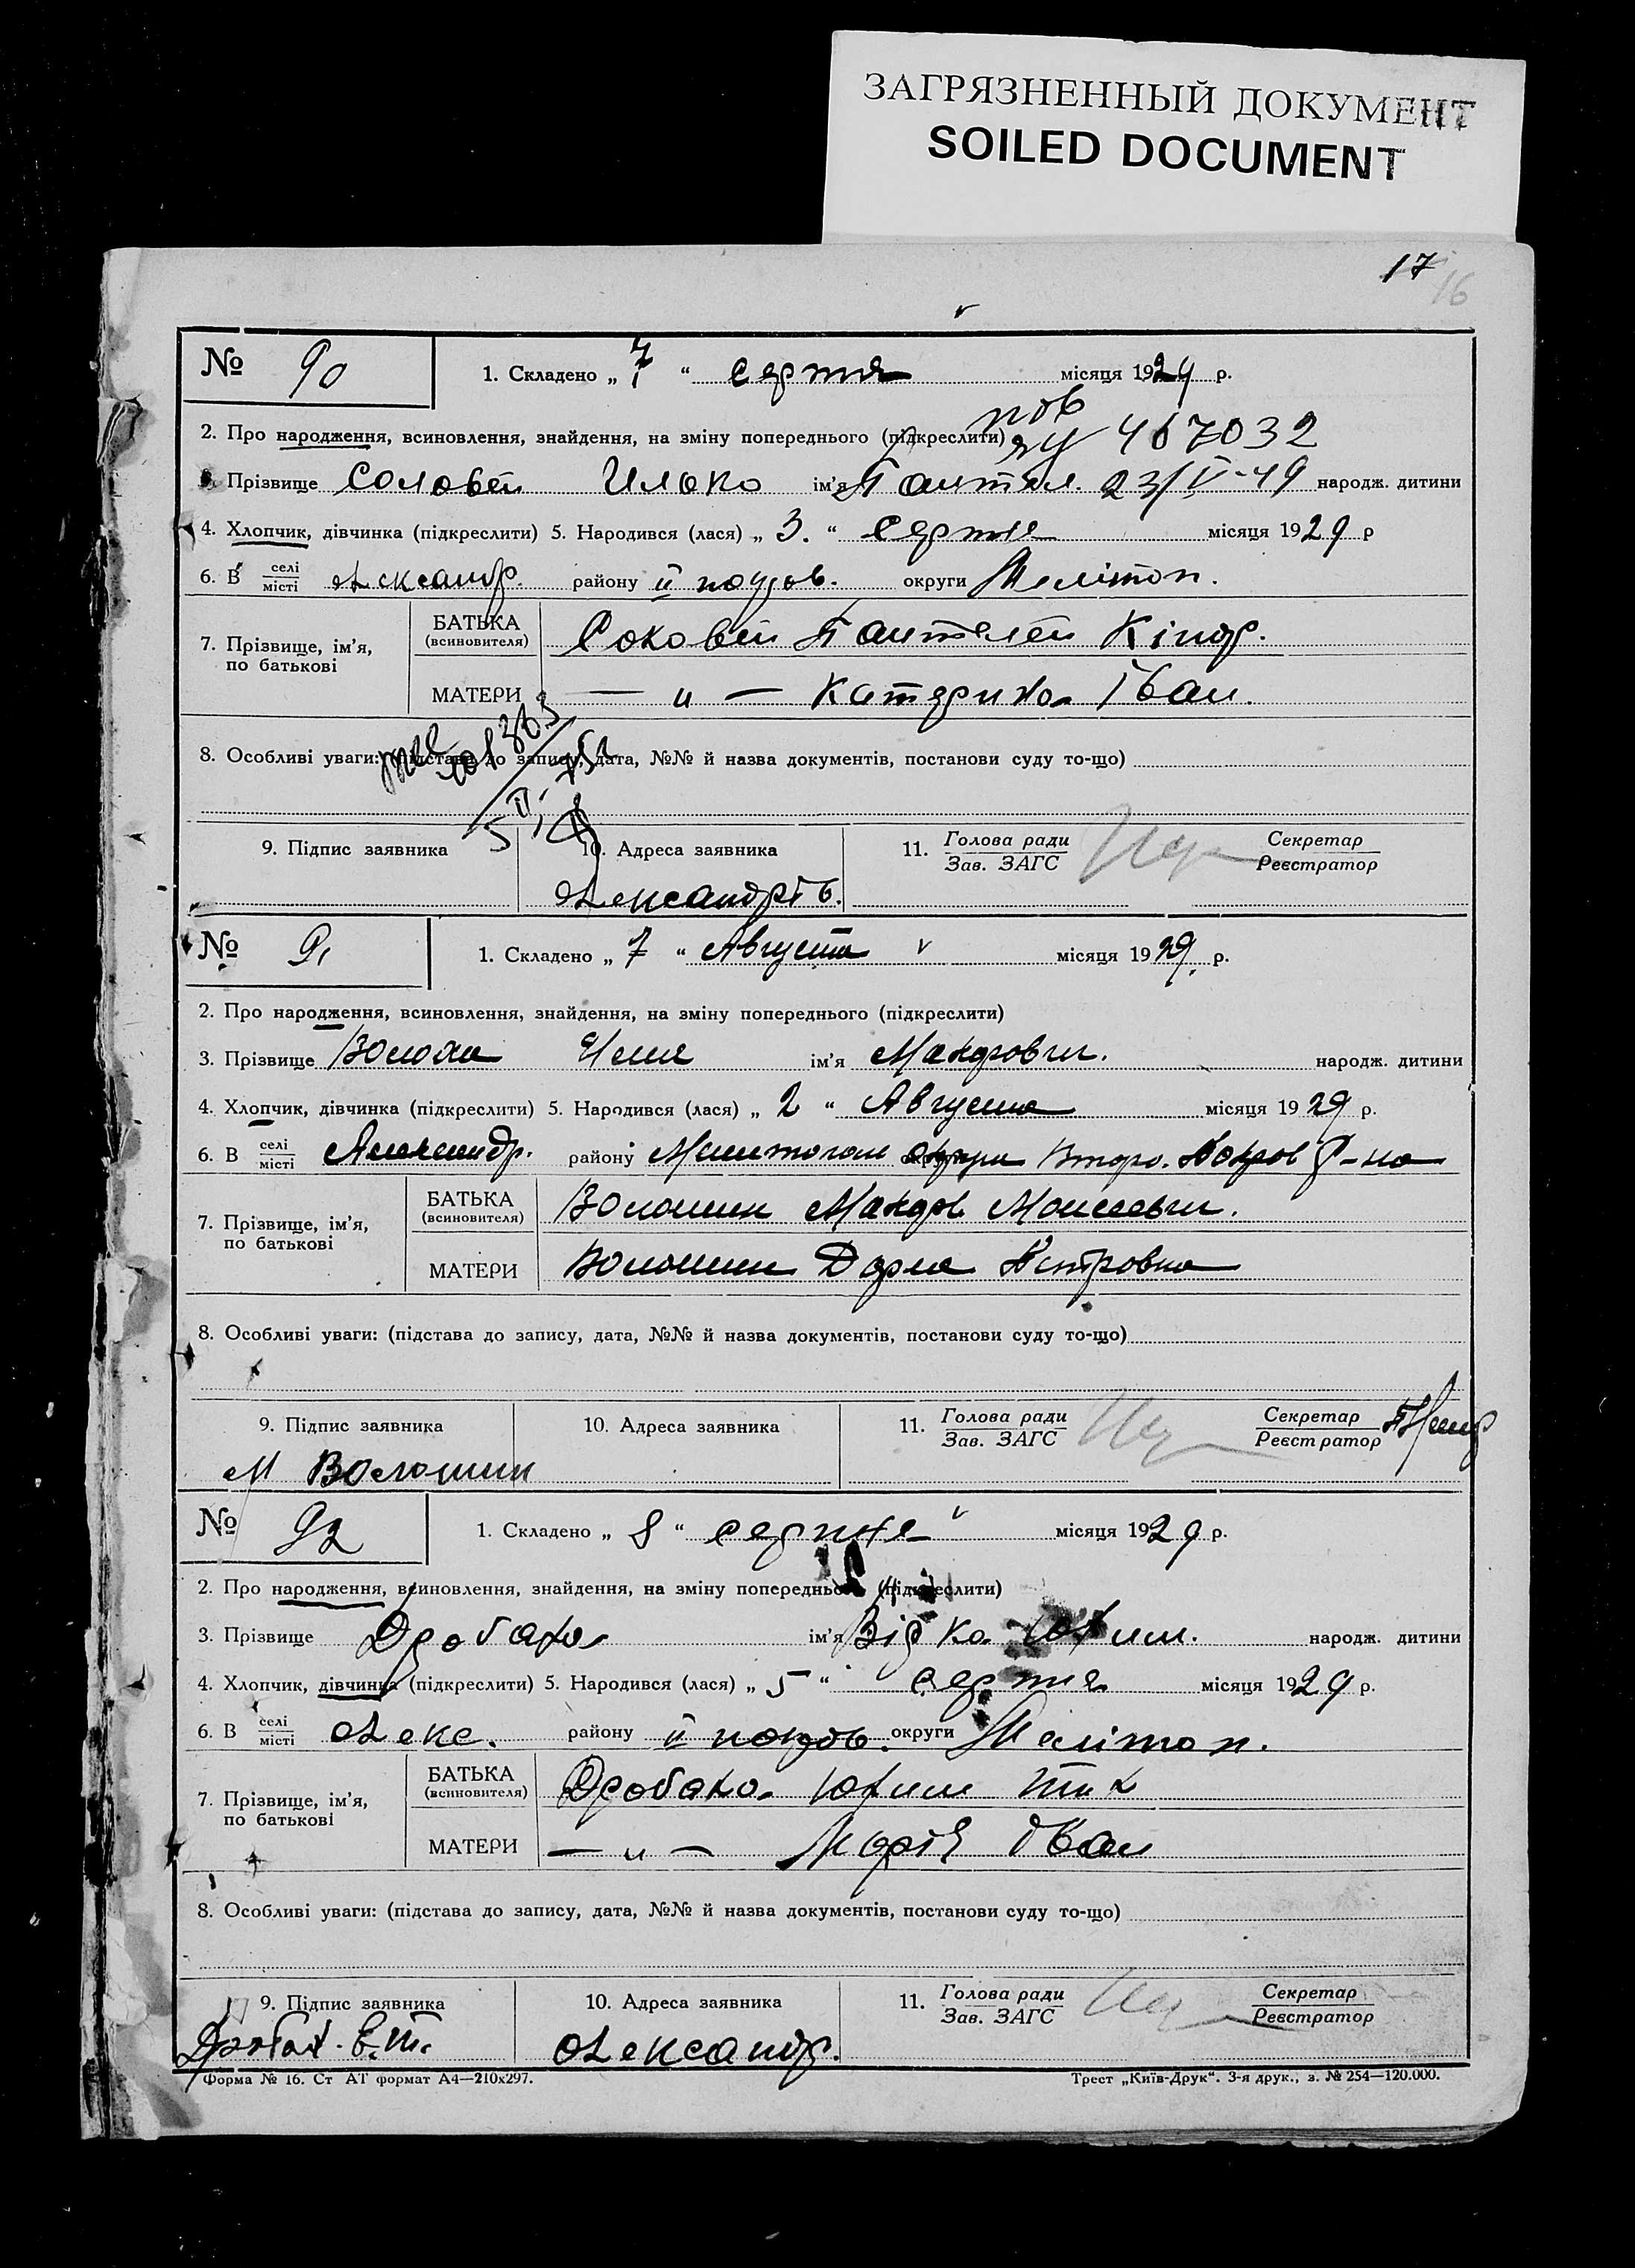 ЗАГРЯЗНЕННЫЙ ДОКУМЕНТ
SOILED DOCUMENT
17
16
№ 90
1. Складено „ 7 “ серпня місяця 1929 р.
2. Про народження, всиновлення, знайдення, на зміну попереднього (підкреслити)
пов
467032
3. Прізвище Соловей Илько ім’я Пантел. 23/V-49 народж. дитини
4. Хлопчик, дівчинка (підкреслити) 5. Народився (лася) „ 3. “ серпня місяця 1929 р
6. В селі/місті Олександр. району II покров. округи Мелітоп.
7. Прізвище, ім’я, по батькові
БАТЬКА (всиновителя) Соловей Пантелей Кіндр.
МАТЕРИ — „ — Катерина Іван.
8. Особливі уваги: (підстава до запису, дата, №№ й назва документів, постанови суду то-що)
9. Підпис заявника
10. Адреса заявника
11. Голова ради/Зав. ЗАГС
Секретар/Реєстратор
Олександрів.
№ 91
1. Складено „ 7 “ Августа місяця 1929 р.
2. Про народження, всиновлення, знайдення, на зміну попереднього (підкреслити)
3. Прізвище Волоши ім’я народж. дитини
4. Хлопчик, дівчинка (підкреслити) 5. Народився (лася) „ 2 “ Августа місяця 1929 р.
6. В селі/місті Александр. району округи Второ. Покров Р-на
7. Прізвище, ім’я, по батькові
БАТЬКА (всиновителя) Волошин Моисеевич.
МАТЕРИ Волошин Дарья Петровна
8. Особливі уваги: (підстава до запису, дата, №№ й назва документів, постанови суду то-що)
9. Підпис заявника
10. Адреса заявника
11. Голова ради/Зав. ЗАГС
Секретар/Реєстратор
М Волошин
№ 92
1. Складено „ 8 “ серпня місяця 1929 р.
2. Про народження, всиновлення, знайдення, на зміну попереднього (підкреслити)
3. Прізвище Дробаха ім’я Вірка Юхим. народж. дитини
4. Хлопчик, дівчинка (підкреслити) 5. Народився (лася) „ 5 “ серпня місяця 1929 р.
6. В селі/місті Олекс. району II покров. округи Мелітоп.
7. Прізвище, ім’я, по батькові
БАТЬКА (всиновителя) Дробаха Юхим Тих
МАТЕРИ — „ — Марія Іван
8. Особливі уваги: (підстава до запису, дата, №№ й назва документів, постанови суду то-що)
9. Підпис заявника
10. Адреса заявника
11. Голова ради/Зав. ЗАГС
Секретар/Реєстратор
Дробах. Е.Т.
Олександр.
Форма № 16. Ст АТ формат А4—210х297.
Трест „Київ-Друк“. 3-я друк., з. № 254—120.000.